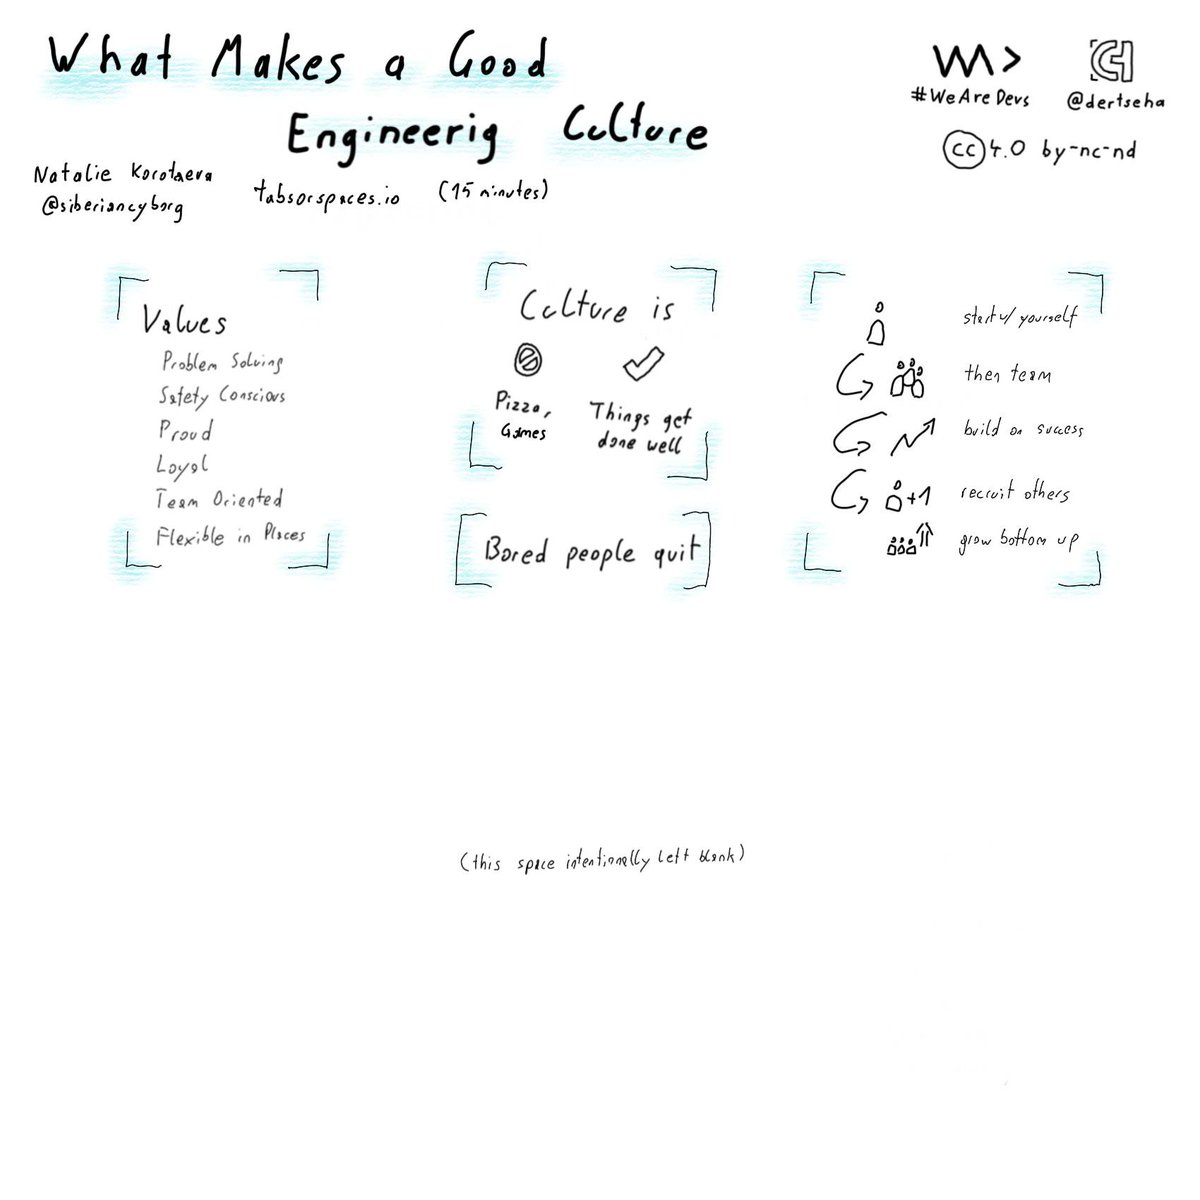 What Makes a Good
Engineerig Culture
Natalie Korotaeva
@siberiancyborg
tabsorspaces.io
(15 minutes)
#WeAreDevs
@dertseha
cc 4.0 by-nc-nd
Values
Problem Solving
Safety Conscious
Proud
Loyal
Team Oriented
Flexible in Places
Culture is
Pizza,
Games
Things get
done well
Bored people quit
start w/ yourself
then team
build on success
+1 recruit others
grow bottom up
(this space intentionally left blank)